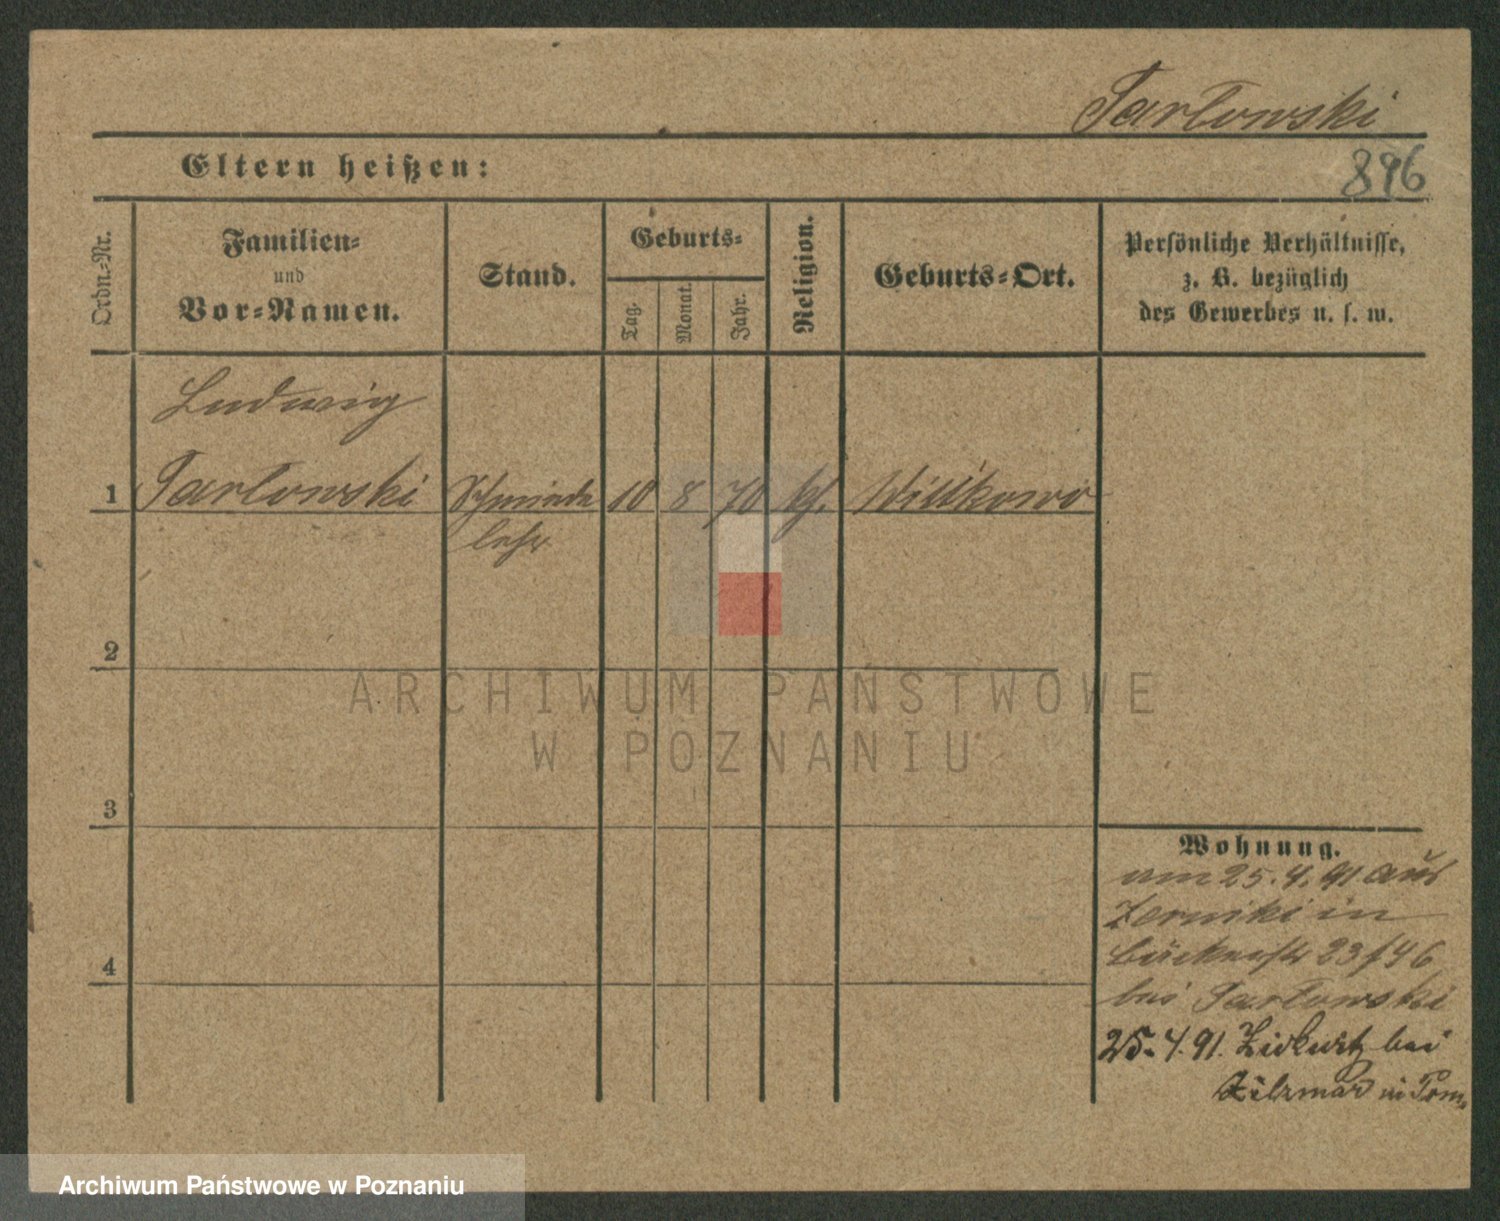 Tarłowski
Eltern heißen:
896
Ordn.-Nr.
Familien-
und
Vor-Namen.
Stand.
Geburts-
Tag.
Monat.
Jahr.
Religion.
Geburts-Ort.
Persönliche Verhältnisse,
z. B. bezüglich
des Gewerbes u. s. w.
Ludwig
1 Tarłowski Schmiede 10 8 70 kf. Wittkowo
lehr
2
3
4
Wohnung.
am 25.4.91 aus
Zerniki in
Bäckerstr 23/46
bei Tarłowski
25.4.91. bei
in Pom.
ARCHIWUM PAŃSTWOWE
W POZNANIU
Archiwum Państwowe w Poznaniu